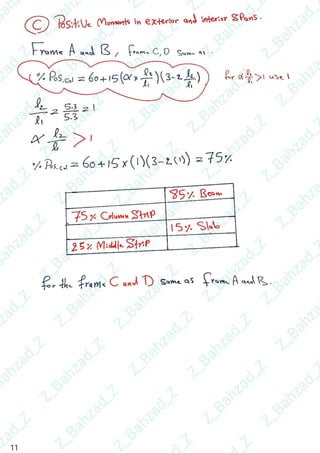 Ⓒ Positive Moments in exterior and interior Spans.
Frame A and B, frame C, D same as.
% Pos.Col = 60+15(α x l2/l1)(3-2 l2/l1) for α l2/l1 >1 use 1
l2/l1 = 5.3/5.3 = 1
α l2/l1 > 1
% Pos.Col = 60+15x(1)(3-2(1)) = 75%
85% Beam
75% Column Strip
15% Slab
25% Middle Strip
for the frame C and D same as frame A and B.
Z_Bahzad_Z
11